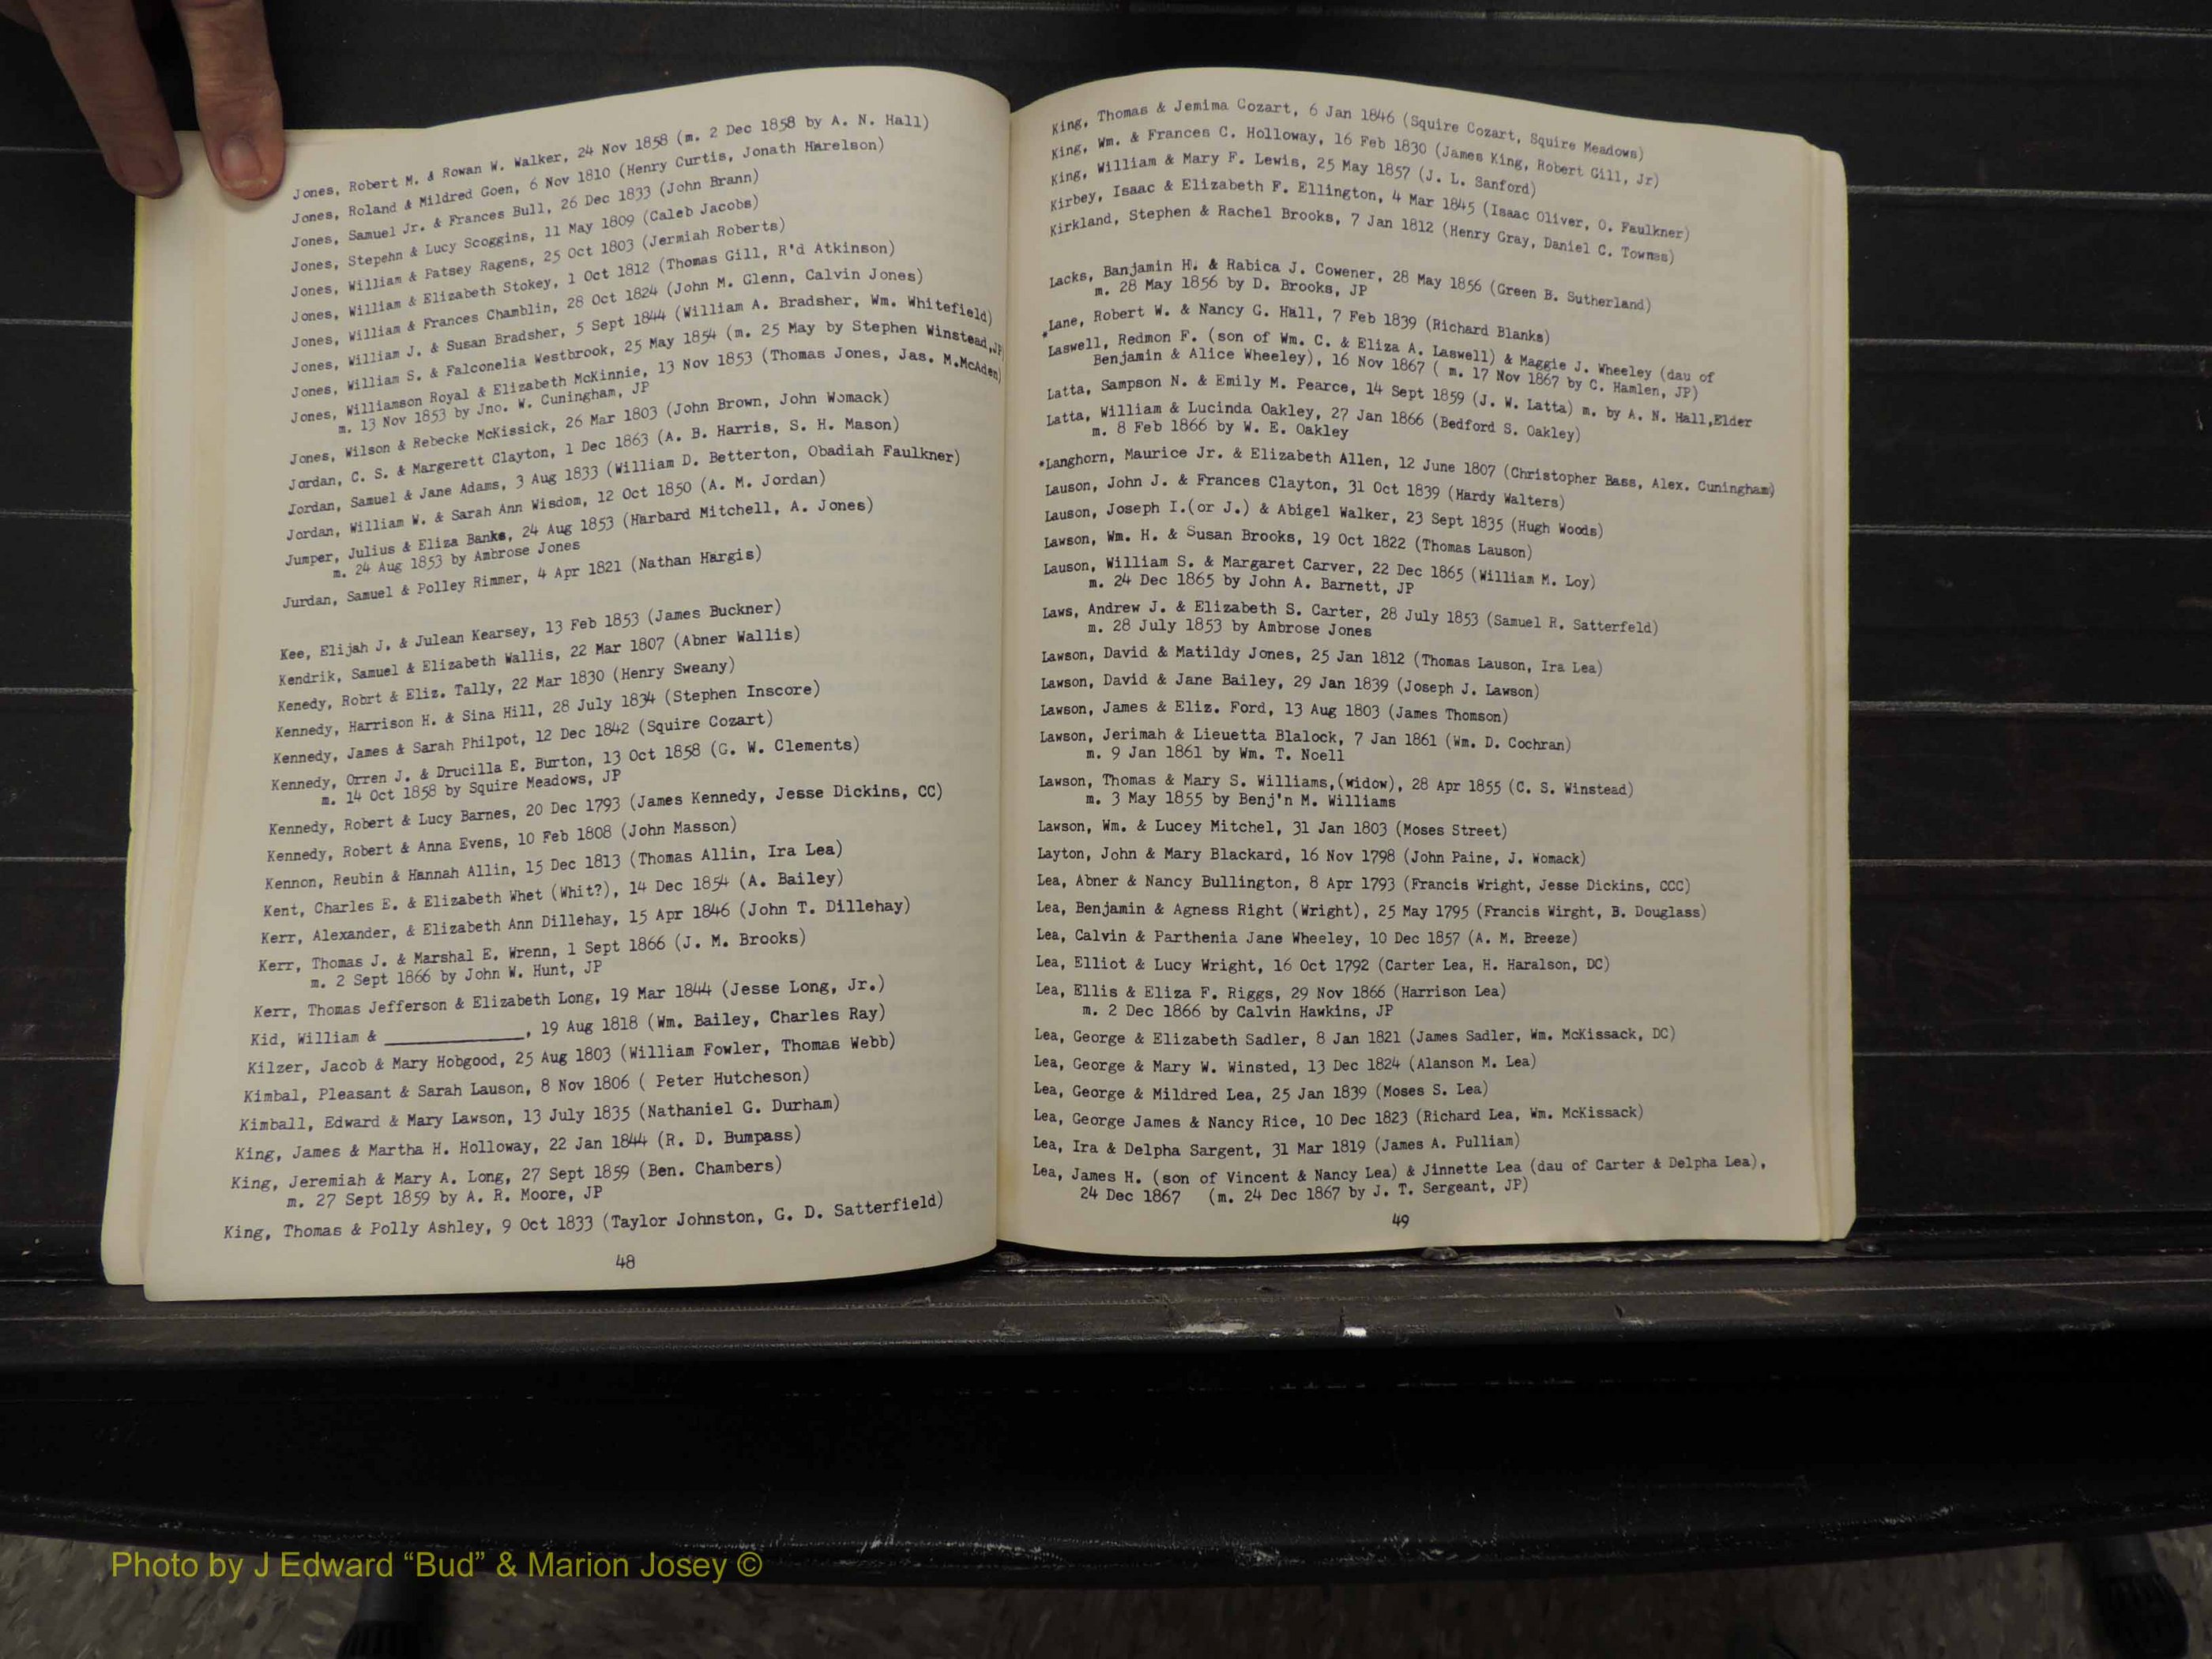 Jones, Robert M. & Rowan W. Walker, 24 Nov 1858 (m. 2 Dec 1858 by A. N. Hall)
Jones, Roland & Mildred Goen, 6 Nov 1810 (Henry Curtis, Jonath Harelson)
Jones, Samuel Jr. & Frances Bull, 26 Dec 1833 (John Brann)
Jones, Stepehn & Lucy Scoggins, 11 May 1809 (Caleb Jacobs)
Jones, William & Patsey Ragens, 25 Oct 1803 (Jermiah Roberts)
Jones, William & Elizabeth Stokey, 1 Oct 1812 (Thomas Gill, R'd Atkinson)
Jones, William & Frances Chamblin, 28 Oct 1824 (John M. Glenn, Calvin Jones)
Jones, William J. & Susan Bradsher, 5 Sept 1844 (William A. Bradsher, Wm. Whitefield)
Jones, William S. & Falconelia Westbrook, 25 May 1854 (m. 25 May by Stephen Winstead,JP)
Jones, Williamson Royal & Elizabeth McKinnie, 13 Nov 1853 (Thomas Jones, Jas. M.McAden)
m. 13 Nov 1853 by Jno. W. Cuningham, JP
Jones, Wilson & Rebecke McKissick, 26 Mar 1803 (John Brown, John Womack)
Jordan, C. S. & Margerett Clayton, 1 Dec 1863 (A. B. Harris, S. H. Mason)
Jordan, Samuel & Jane Adams, 3 Aug 1833 (William D. Betterton, Obadiah Faulkner)
Jordan, William W. & Sarah Ann Wisdom, 12 Oct 1850 (A. M. Jordan)
Jumper, Julius & Eliza Banks, 24 Aug 1853 (Harbard Mitchell, A. Jones)
m. 24 Aug 1853 by Ambrose Jones
Jurdan, Samuel & Polley Rimmer, 4 Apr 1821 (Nathan Hargis)
Kee, Elijah J. & Julean Kearsey, 13 Feb 1853 (James Buckner)
Kendrik, Samuel & Elizabeth Wallis, 22 Mar 1807 (Abner Wallis)
Kenedy, Robrt & Eliz. Tally, 22 Mar 1830 (Henry Sweany)
Kennedy, Harrison H. & Sina Hill, 28 July 1834 (Stephen Inscore)
Kennedy, James & Sarah Philpot, 12 Dec 1842 (Squire Cozart)
Kennedy, Orren J. & Drucilla E. Burton, 13 Oct 1858 (G. W. Clements)
m. 14 Oct 1858 by Squire Meadows, JP
Kennedy, Robert & Lucy Barnes, 20 Dec 1793 (James Kennedy, Jesse Dickins, CC)
Kennedy, Robert & Anna Evens, 10 Feb 1808 (John Masson)
Kennon, Reubin & Hannah Allin, 15 Dec 1813 (Thomas Allin, Ira Lea)
Kent, Charles E. & Elizabeth Whet (Whit?), 14 Dec 1854 (A. Bailey)
Kerr, Alexander, & Elizabeth Ann Dillehay, 15 Apr 1846 (John T. Dillehay)
Kerr, Thomas J. & Marshal E. Wrenn, 1 Sept 1866 (J. M. Brooks)
m. 2 Sept 1866 by John W. Hunt, JP
Kerr, Thomas Jefferson & Elizabeth Long, 19 Mar 1844 (Jesse Long, Jr.)
Kid, William & ____________, 19 Aug 1818 (Wm. Bailey, Charles Ray)
Kilzer, Jacob & Mary Hobgood, 25 Aug 1803 (William Fowler, Thomas Webb)
Kimbal, Pleasant & Sarah Lauson, 8 Nov 1806 ( Peter Hutcheson)
Kimball, Edward & Mary Lawson, 13 July 1835 (Nathaniel G. Durham)
King, James & Martha H. Holloway, 22 Jan 1844 (R. D. Bumpass)
King, Jeremiah & Mary A. Long, 27 Sept 1859 (Ben. Chambers)
m. 27 Sept 1859 by A. R. Moore, JP
King, Thomas & Polly Ashley, 9 Oct 1833 (Taylor Johnston, G. D. Satterfield)
48
King, Thomas & Jemima Cozart, 6 Jan 1846 (Squire Cozart, Squire Meadows)
King, Wm. & Frances C. Holloway, 16 Feb 1830 (James King, Robert Gill, Jr)
King, William & Mary F. Lewis, 25 May 1857 (J. L. Sanford)
Kirbey, Isaac & Elizabeth F. Ellington, 4 Mar 1845 (Isaac Oliver, O. Faulkner)
Kirkland, Stephen & Rachel Brooks, 7 Jan 1812 (Henry Gray, Daniel C. Townes)
Lacks, Banjamin H. & Rabica J. Cowener, 28 May 1856 (Green B. Sutherland)
m. 28 May 1856 by D. Brooks, JP
*Lane, Robert W. & Nancy G. Hall, 7 Feb 1839 (Richard Blanks)
Laswell, Redmon F. (son of Wm. C. & Eliza A. Laswell) & Maggie J. Wheeley (dau of
Benjamin & Alice Wheeley), 16 Nov 1867 ( m. 17 Nov 1867 by C. Hamlen, JP)
Latta, Sampson N. & Emily M. Pearce, 14 Sept 1859 (J. W. Latta) m. by A. N. Hall,Elder
Latta, William & Lucinda Oakley, 27 Jan 1866 (Bedford S. Oakley)
m. 8 Feb 1866 by W. E. Oakley
*Langhorn, Maurice Jr. & Elizabeth Allen, 12 June 1807 (Christopher Bass, Alex. Cuningham)
Lauson, John J. & Frances Clayton, 31 Oct 1839 (Hardy Walters)
Lauson, Joseph I.(or J.) & Abigel Walker, 23 Sept 1835 (Hugh Woods)
Lawson, Wm. H. & Susan Brooks, 19 Oct 1822 (Thomas Lauson)
Lauson, William S. & Margaret Carver, 22 Dec 1865 (William M. Loy)
m. 24 Dec 1865 by John A. Barnett, JP
Laws, Andrew J. & Elizabeth S. Carter, 28 July 1853 (Samuel R. Satterfeld)
m. 28 July 1853 by Ambrose Jones
Lawson, David & Matildy Jones, 25 Jan 1812 (Thomas Lauson, Ira Lea)
Lawson, David & Jane Bailey, 29 Jan 1839 (Joseph J. Lawson)
Lawson, James & Eliz. Ford, 13 Aug 1803 (James Thomson)
Lawson, Jerimah & Lieuetta Blalock, 7 Jan 1861 (Wm. D. Cochran)
m. 9 Jan 1861 by Wm. T. Noell
Lawson, Thomas & Mary S. Williams,(widow), 28 Apr 1855 (C. S. Winstead)
m. 3 May 1855 by Benj'n M. Williams
Lawson, Wm. & Lucey Mitchel, 31 Jan 1803 (Moses Street)
Layton, John & Mary Blackard, 16 Nov 1798 (John Paine, J. Womack)
Lea, Abner & Nancy Bullington, 8 Apr 1793 (Francis Wright, Jesse Dickins, CCC)
Lea, Benjamin & Agness Right (Wright), 25 May 1795 (Francis Wirght, B. Douglass)
Lea, Calvin & Parthenia Jane Wheeley, 10 Dec 1857 (A. M. Breeze)
Lea, Elliot & Lucy Wright, 16 Oct 1792 (Carter Lea, H. Haralson, DC)
Lea, Ellis & Eliza F. Riggs, 29 Nov 1866 (Harrison Lea)
m. 2 Dec 1866 by Calvin Hawkins, JP
Lea, George & Elizabeth Sadler, 8 Jan 1821 (James Sadler, Wm. McKissack, DC)
Lea, George & Mary W. Winsted, 13 Dec 1824 (Alanson M. Lea)
Lea, George & Mildred Lea, 25 Jan 1839 (Moses S. Lea)
Lea, George James & Nancy Rice, 10 Dec 1823 (Richard Lea, Wm. McKissack)
Lea, Ira & Delpha Sargent, 31 Mar 1819 (James A. Pulliam)
Lea, James H. (son of Vincent & Nancy Lea) & Jinnette Lea (dau of Carter & Delpha Lea),
24 Dec 1867 (m. 24 Dec 1867 by J. T. Sergeant, JP)
49
Photo by J Edward “Bud” & Marion Josey ©